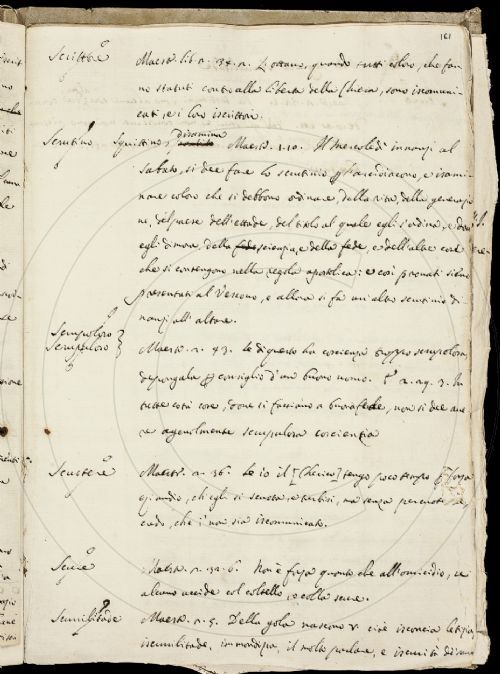 161
Scrittore Maest. lib. 2. 34. n. L'ottavo, quando tutti coloro, che fan-
no statuti contro alla libertà della Chiesa, sono iscomuni-
cati, e i loro iscrittori.
Scrutino, Squittino, disamina Maest. 1.10. Il Mercoledì innanzi al
Sabato, si dee fare lo scrutinio Arcidiacono, e isami-
nare coloro che si debbono ordinare, della vita, della generazio-
ne, del paese dell'ettade, del titolo al quale egli s'ordina, e dove
egli dimora, della scienzia, e della fede, e dell'altre cose
che si contengono nella regola apostolica: e così provati sieno
presentati al Vescovo, e allora si fa un altro scrutinio di-
nanzi all'altare.
Scrupoloso
Scrupuloso Maest. 2. 43. Se di questo ha coscienza troppo scrupolosa,
dipongala consiglio d'un buono uomo. 2. 29. 3. In
tutte cose, dove si facciano a buona fede, non si dee ave-
re agevolmente scrupolosa coscienzia
Scuotere Maest. 2. 36. Se io il [Cherico] tengo poco tempo forza
ch'egli si scuota, ma senza percuoterlo
che i' non sia iscomunicato.
Scure Maest. 2. 32. 6. Non è forza quanto che all'omicidio, se
alcuno uccide col coltello, o colla scure.
Scurilitade Maest. 2. 5. Della gola nascono V. cioè isconcia letizia,
iscurilitade, immondizia, il molto parlare, e